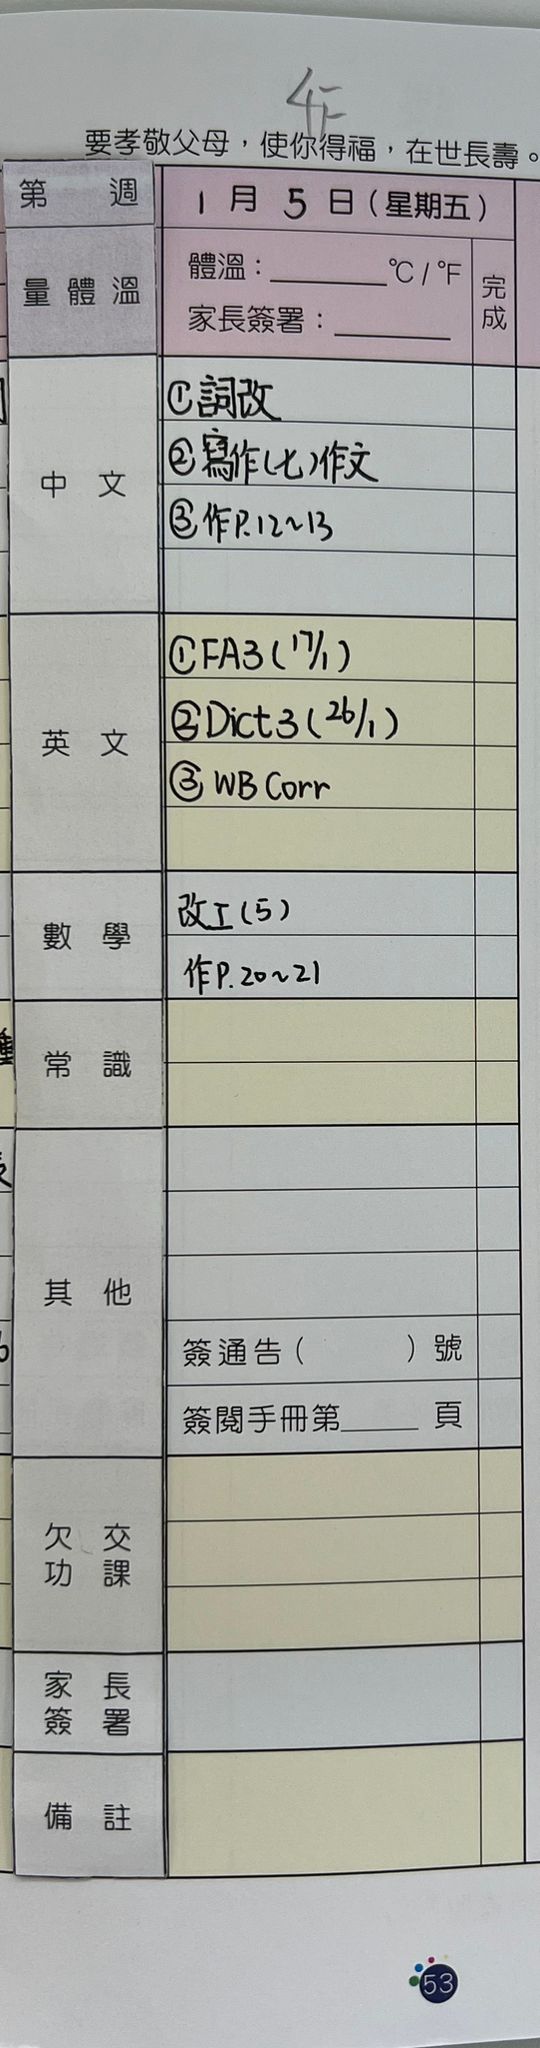 4F
要孝敬父母，使你得福，在世長壽。
第 週 1 月 5 日（星期五）
量體溫 體溫：______℃/℉ 完成
家長簽署：______
中文 ①詞改
②寫作(七)作文
③作P.12~13
英文 ①FA3(17/1)
②Dict3(26/1)
③WB Corr
數學 改工(5)
作P.20~21
常識
其他
簽通告（ ）號
簽閱手冊第______頁
欠交功課
家長簽署
備註
53